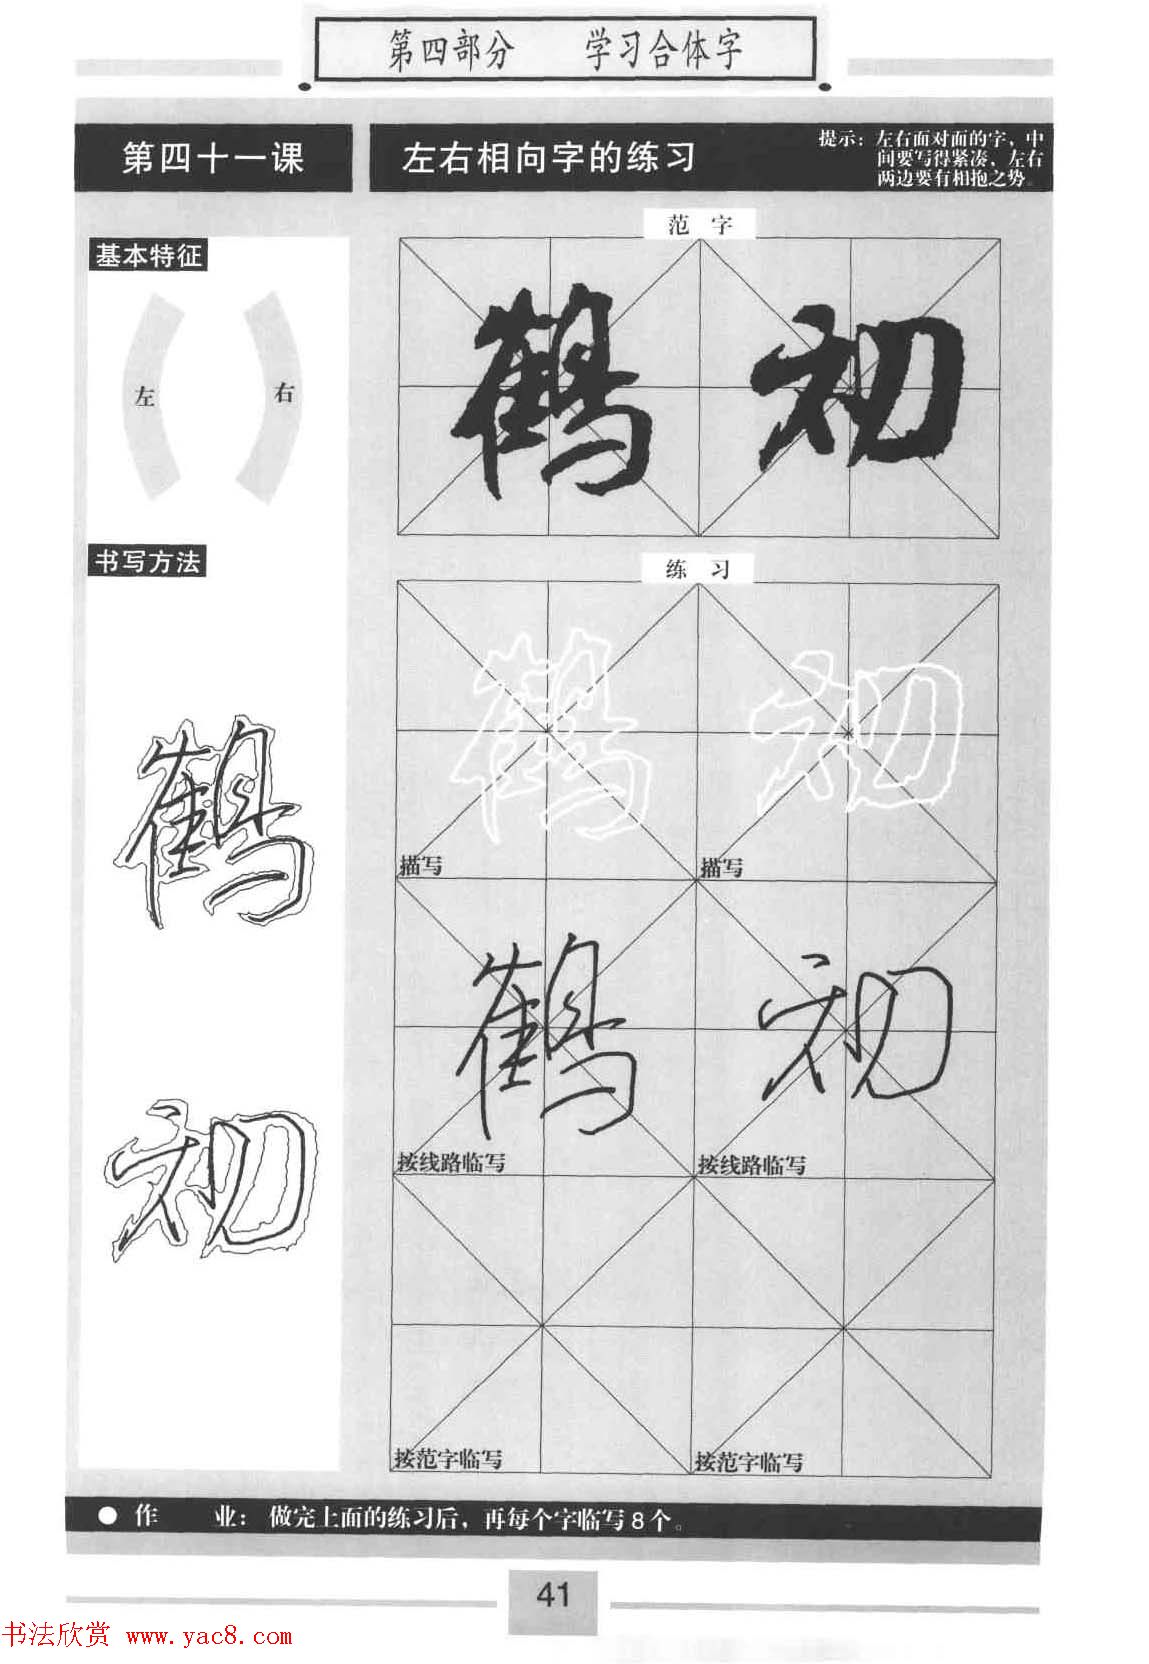 第四部分 学习合体字
第四十一课
左右相向字的练习
提示：左右面对面的字，中
间要写得紧凑，左右
两边要有相抱之势。
基本特征
左 右
书写方法
鹤
初
范 字
鹤 初
练 习
鹤 初
描写 描写
鹤 初
按线路临写 按线路临写
按范字临写 按范字临写
● 作 业：做完上面的练习后，再每个字临写8个。
41
书法欣赏 www.yac8.com